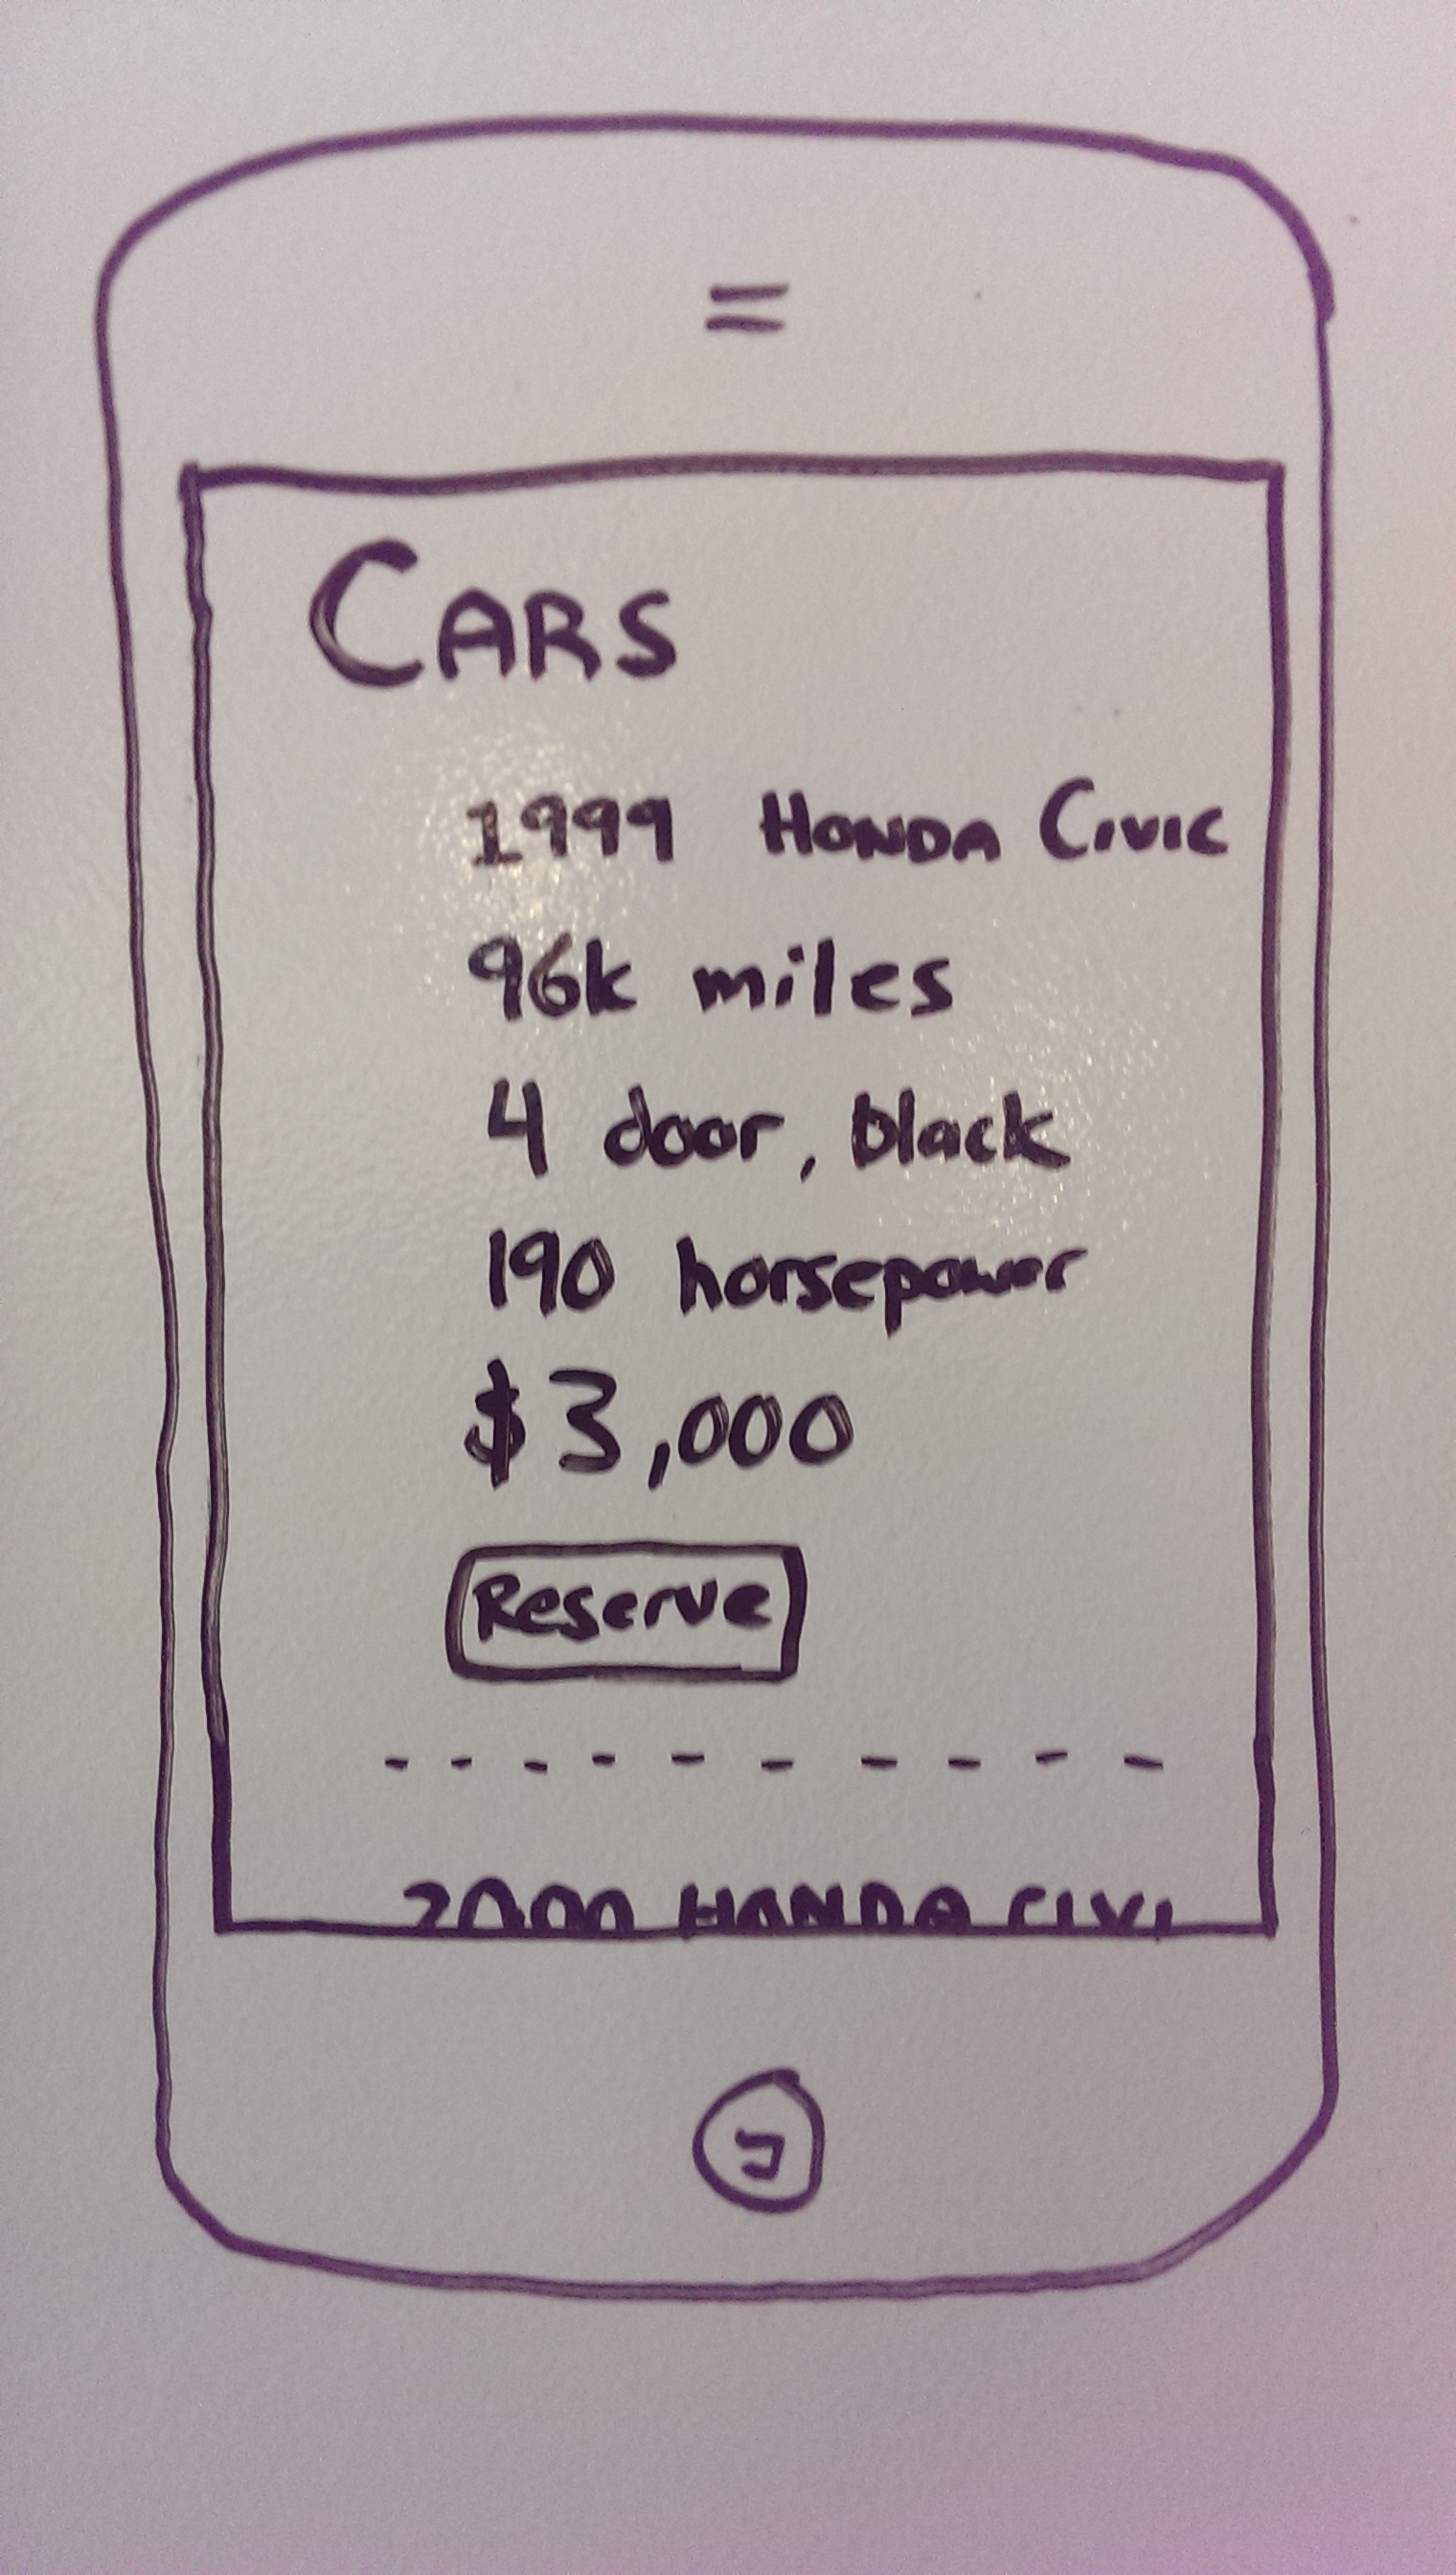 CARS
1999 HONDA CIVIC
96k miles
4 door, black
190 horsepower
$3,000
Reserve
2000 HONDA CIVI